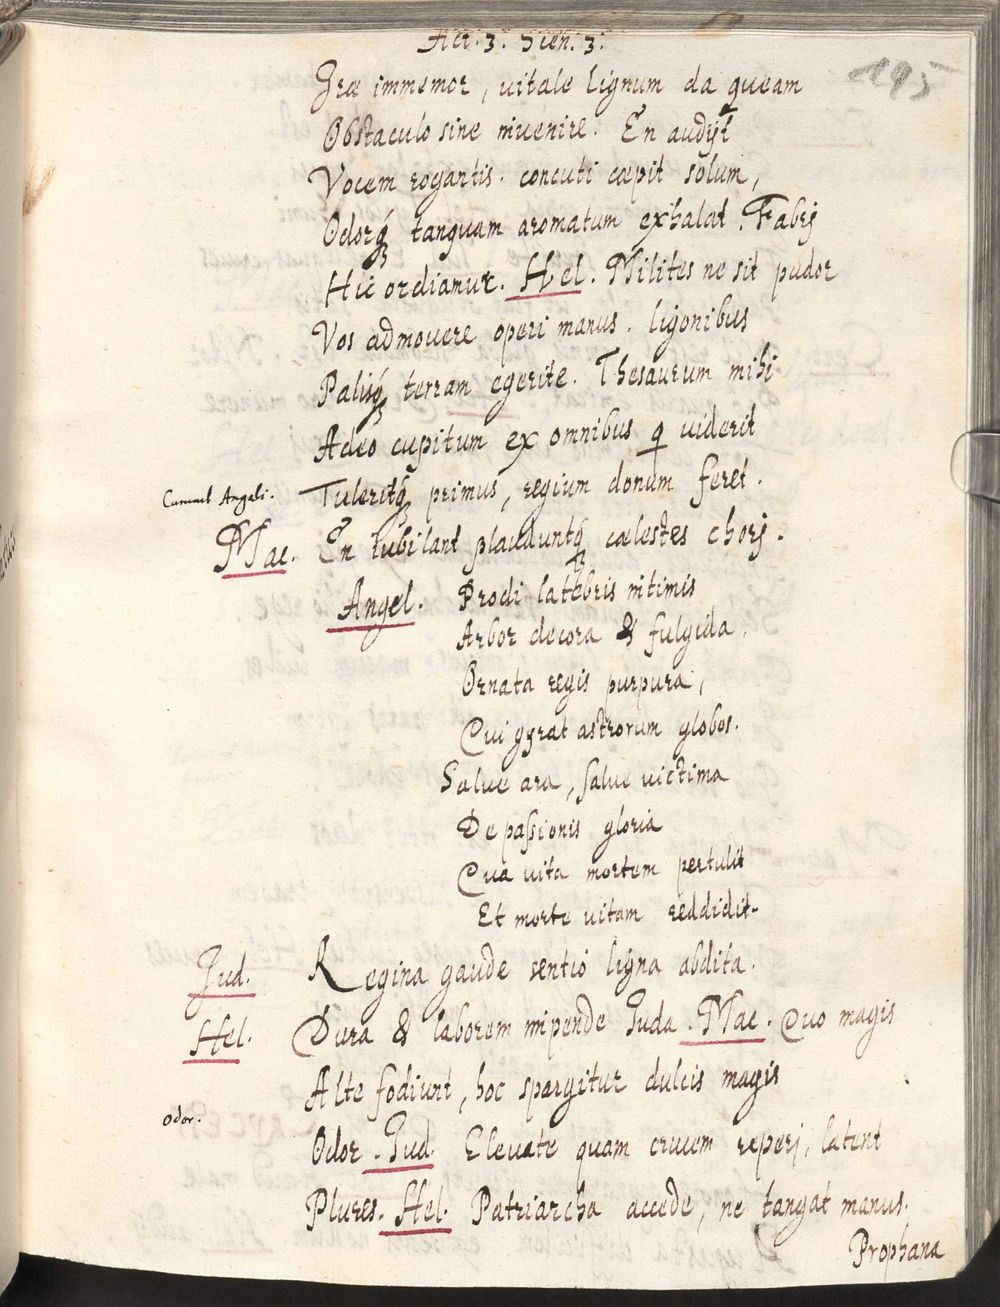 Act. 3. Scen. 3.
195
Iræ immemor, vitale lignum da queam
Obstaculo sine invenire. En audijt
Vocem rogantis. concuti cæpit solum,
Odorq́ tanquam aromatum exhalat. Fabrj
Hic ordiamur. Hel. Milites ne sit pudor
Vos admouere operi manus. ligonibus
Palisq́ terram egerite. Thesaurum mihi
Adeo cupitum ex omnibus q viderit
Cantant Angeli. Tuleritq́ primus, regium donum feret.
Mac. En iubilant plauduntq́ cælestes chorj.
Angel. Prodi latebris intimis
Arbor decora & fulgida,
Ornata regis purpura,
Cui gyrat astrorum globos.
Salue ara, salue victima
De passionis gloria
Qua vita mortem pertulit
Et morte vitam reddidit.
Jud. Regina gaude sentio ligna abdita.
Hel. Dura & laborem impende Juda. Mac. Quo magis
Alte fodiunt, hoc spargitur dulcis magis
Odor. Odor. Jud. Eleuate quam crucem reperj, latent
Plures. Hel. Patriarcha accede, ne tangat manus.
Prophana